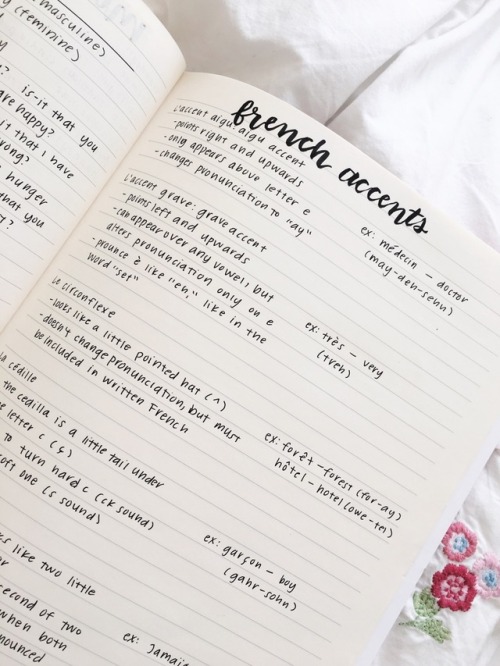 masculine)
y (feminine)
? is-it that you
are happy?
it that I have
rong?
hunger
that you
y?
french accents
L'accent aigu: aigu accent
-points right and upwards
-only appears above letter e
-changes pronunciation to "ay"
ex: médecin – doctor
(may-deh-sehn)
L'accent grave: grave accent
-points left and upwards
-can appear over any vowel, but
alters pronunciation only on e
-prounce è like "eh," like in the
word "set"
ex: très – very
(treh)
Le circonflexe
-looks like a little pointed hat (^)
-doesn't change pronunciation, but must
be included in written French
ex: forêt – forest (for-ay)
hôtel – hotel (owe-tel)
La cédille
the cedilla is a little tail under
e letter c (ç)
to turn hard c (ck sound)
soft one (s sound)
ex: garçon – boy
(gahr-sohn)
ks like two little
second of two
when both
nounced
ex: Jamai